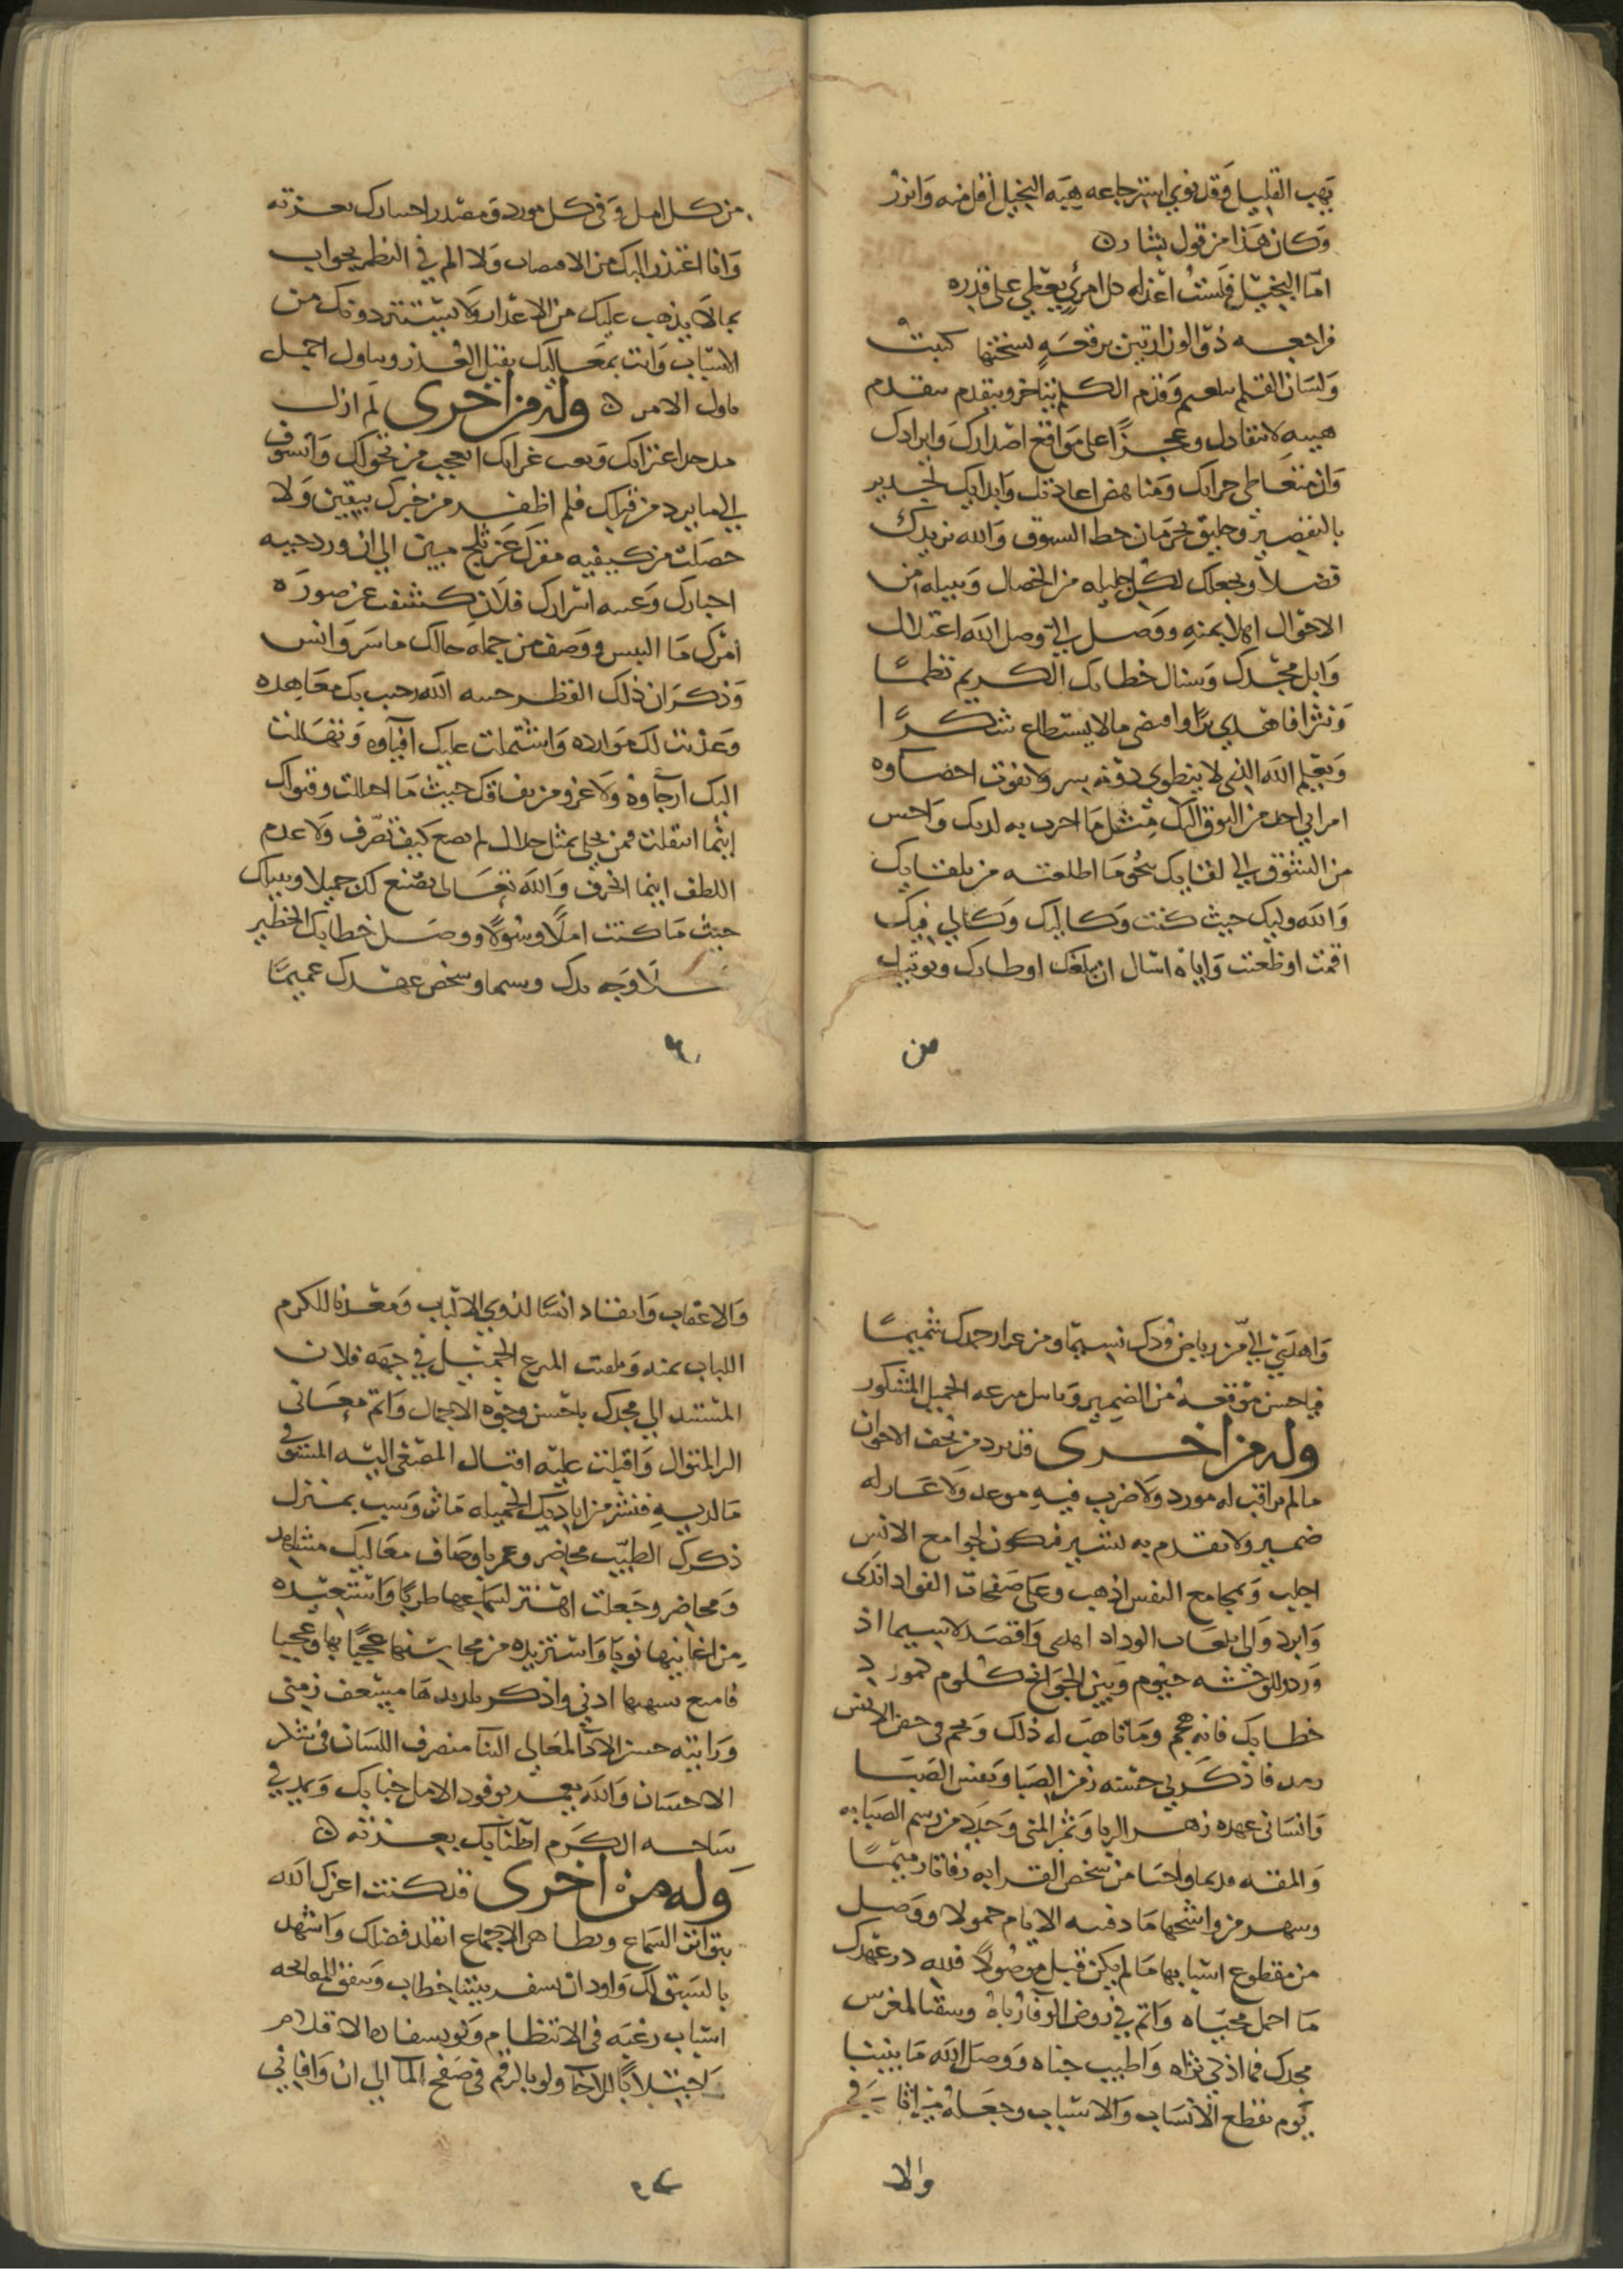 يهب القليل وقد نوى استرجاعه هبة البخيل اقل منه وانزر
وكان هذا من قول بشار
اما البخيل فلست اعذله كل امرئ يعطي على قدره
فراجعه ذو الوزارتين برقعة نسختها كتبت
ولسان القلم يتلعثم وقدم الكلم يتاخر ويتقدم
هيبة لانتقادك وعجزا على مواقع اصدارك وايرادك
وان متعاطي جرائك ومناهض اعادتك وابدائك لجدير
بالتقصير وخليق بحرمان حظ السبوق والله يزيدك
فضلا ويجعلك لكل جليلة من الخصال ونبيلة من
الاحوال اهلا بمنه ووصل الي وصل الله اعتلاك
واثل مجدك وسناك خطابك الكريم نظما
ونثرا فاهدى برا واقتضى ما لا يستطاع شكرا
ويعلم الله الذي لا ينطوي دونه سر ولا يفوت احصاوه
امرا اني اجد من التوق اليك مثل ما اخبرت به لديك واحس
من التشوق الى لقايك نحو ما اطلعته من تلقايك
والله وليك حيث كنت وكاليك وكالي فيك
اقمت او ظعنت واياه اسال ان يبلغك اوطارك ويوتيك
من
من كل امل وفي كل مورد ومصدر اختيارك بعزته
وانا اعتذر اليك من الاقتضاب ولا الم في النظم بجواب
بما لا يذهب عليك من الاعذار ولا يستتر دونك من
الاسباب وانت بمعاليك يقبل العذر ويتاول اجمل
تاول الامر وله من اخرى لم ازل
اعجب من نحواك واتسوف
الى ما يرد من قبلك فلم اظفر من خبرك بيقين ولا
حصلت من كيفيه مقرك عن ثلج مبين الى ان ورد
اخبارك وعيبه اسرارك فلان كشف عن صوره
امرك ما البس ووصف من جمله حالك ما سر وانس
وذكر ان ذلك القطر حرسه الله رحبت بك معاهده
وعذبت لك موارده واشتملت عليك افياوه وتهاللت
اليك ارجاوه ولا غرو من نفاقك حيث ما احتللت وقبولك
اينما انتقلت فمن تحلى بمثل حلاك لم يضع كيف تصرف ولا عدم
اللطف اينما انحرف والله تعالى يصنع لك جميلا وينيلك
حيث ما كنت املا وسولا ووصل خطابك الخطير
وجه ودك وسيما وشخص عهدك عميما
واهدى الي من رياض ودك نسيما ومن عرار حمدك شميما
فيا حسن موقعه من الضمير ويا سلس مرعه الجميل المشكور
وله من اخرى قد يرد من تحف الاخوان
ما لم يراقب له مورد ولا ضرب فيه موعد ولا عبار له
ضمير ولا تقدم به بشير فيكون لجوامع الانس
اجلب وبمجامع النفس اذهب وعلى صفحات الفواد اندى
وابرد والى الوداد اهدى واقصد لا سيما اذ
ورد للوحشه جيوم وبين الجوانح كلوم كمورد
خطابك فانه هجم وما تاهب له ذلك ونجم في حين الانس
رمد فاذكرني حسنه زمن الصبا ونفس الصبا
وانساني عهده زهر الربا وثمر المنى وجلا من رسم الصبابه
والمقه قديما واحيا من شخص القرابه رفاتا رميما
وشهر من وشائجها ما دفنه الايام خمولا ووصل
من مقطوع اسبابها ما لم يكن قبل موصولا فلله در عهدك
ما اجمل محياه واتم في روض الوفا رباه وسقيا لمغرس
مجدك فما ازكى ثراه واطيب جناه ووصل الله ما بيننا
يوم تقطع الانساب والاسباب وجعله باقيا في
والا
والاعقاب وابقاك انسا لذوي الالباب ومعدنا للكرم
اللباب بمنه وبلغت المرع الجميل في جهه فلان
المستند الى مجدك باحسن وجوه الاجمال واتم معاني
البر المنوال واقبلت عليه اقبال المصغي اليه المتشوف
ما لديه فنشر من اياديك الجميله ما شا ونسب بمنزل
ذكرك الطيب محاضر وعمر باوصاف معاليك مشاهد
ومحاضر وجعلت اهتز لسماعها طربا واستعيده
من اغانيها نوبا واستزيده من محاسنها عجبا بها وعجبا
فامتع بشهيها اذني واذكر بلديدها ميسعف زمني
ورايته حسن الاداء لمعالي الثنا منصرف اللسان في نشر
الاحسان والله يعمر بوفود الامل جنابك ويمد في
ساحه الكرم اطنابك بعزته
وله من اخرى قد كنت اعزك الله
بتواتر السماع وتظاهر الاجماع اتقلد فضلك واشهد
بالسبق لك واود ان يسفر بيننا خطاب ويتفق للمفاتحه
اسباب رغبه في الانتظام ولو بسفاره الاقلام
واجتلابا للاخا ولو بالرقم في صفح الما الى ان وافاني